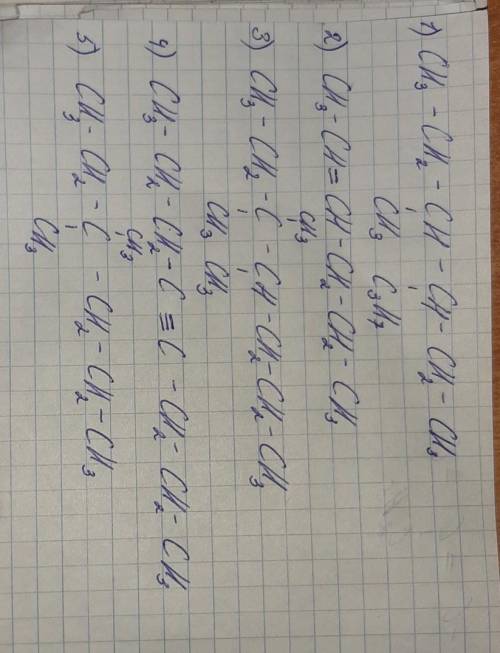 1) CH₃ - CH₂ - CH - CH - CH₂ - CH₃
CH₃ C₃H₇
2) CH₃ - CH = CH - CH₂ - CH₂ - CH₃
CH₃
3) CH₃ - CH₂ - C - CH - CH₂ - CH₂ - CH₃
CH₃ CH₃
4) CH₃ - CH₂ - CH₂ - C ≡ C - CH₂ - CH₂ - CH₃
CH₃
5) CH₃ - CH₂ - C - CH₂ - CH₂ - CH₃
CH₃